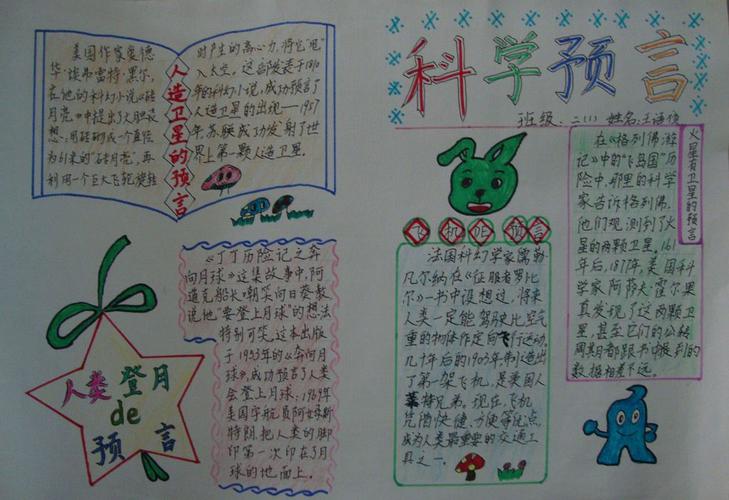 科学预言
班级：二(1) 姓名：王语
人造卫星的预言
美国作家爱德
华·埃弗雷特·黑尔，
在他的科幻小说《砖
月亮》中提出了大胆设
想：用砖砌成一个直径
为61米的“砖月亮”，再
利用一个巨大飞轮旋转
时产生的离心力，将它“甩”
入太空。这部发表于18
年的科幻小说，成功预言了
人造卫星的出现——1957
年，苏联成功发射了世
界上第一颗人造卫星。
人类登月
de
预言
《丁丁历险记之奔
向月球》这集故事中，阿
道克船长，嘲笑向日葵教
授他“要登上月球”的想法
特别可笑。这本出版
于1953年的《奔向月
球》，成功预言了人类
会登上月球：1969年
美国宇航员阿姆斯
特朗，把人类的脚
印第一次印在了月
球的地面上。
飞机de预言
法国科幻学家儒勒
凡尔纳在《征服者罗比
尔》一书中设想过，将来
人类一定能驾驶比空气
重的物体作定向飞行运动。
几十年后的1903年，制造出
了第一架飞机，是美国人
莱特兄弟。现在，飞机
凭借快捷、方便等优点，
成为人类最重要的交通工
具之一。
火星有卫星的预言
在《格列佛游
记》中的“飞岛国”历
险中，那里的科学
家告诉格列佛，
他们观测到了火
星的两颗卫星。161
年后，1877年，美国科
学家阿萨夫·霍尔果
真发现了这两颗卫
星，甚至它们的公转
周期都跟书中报到的
数据相差不远。